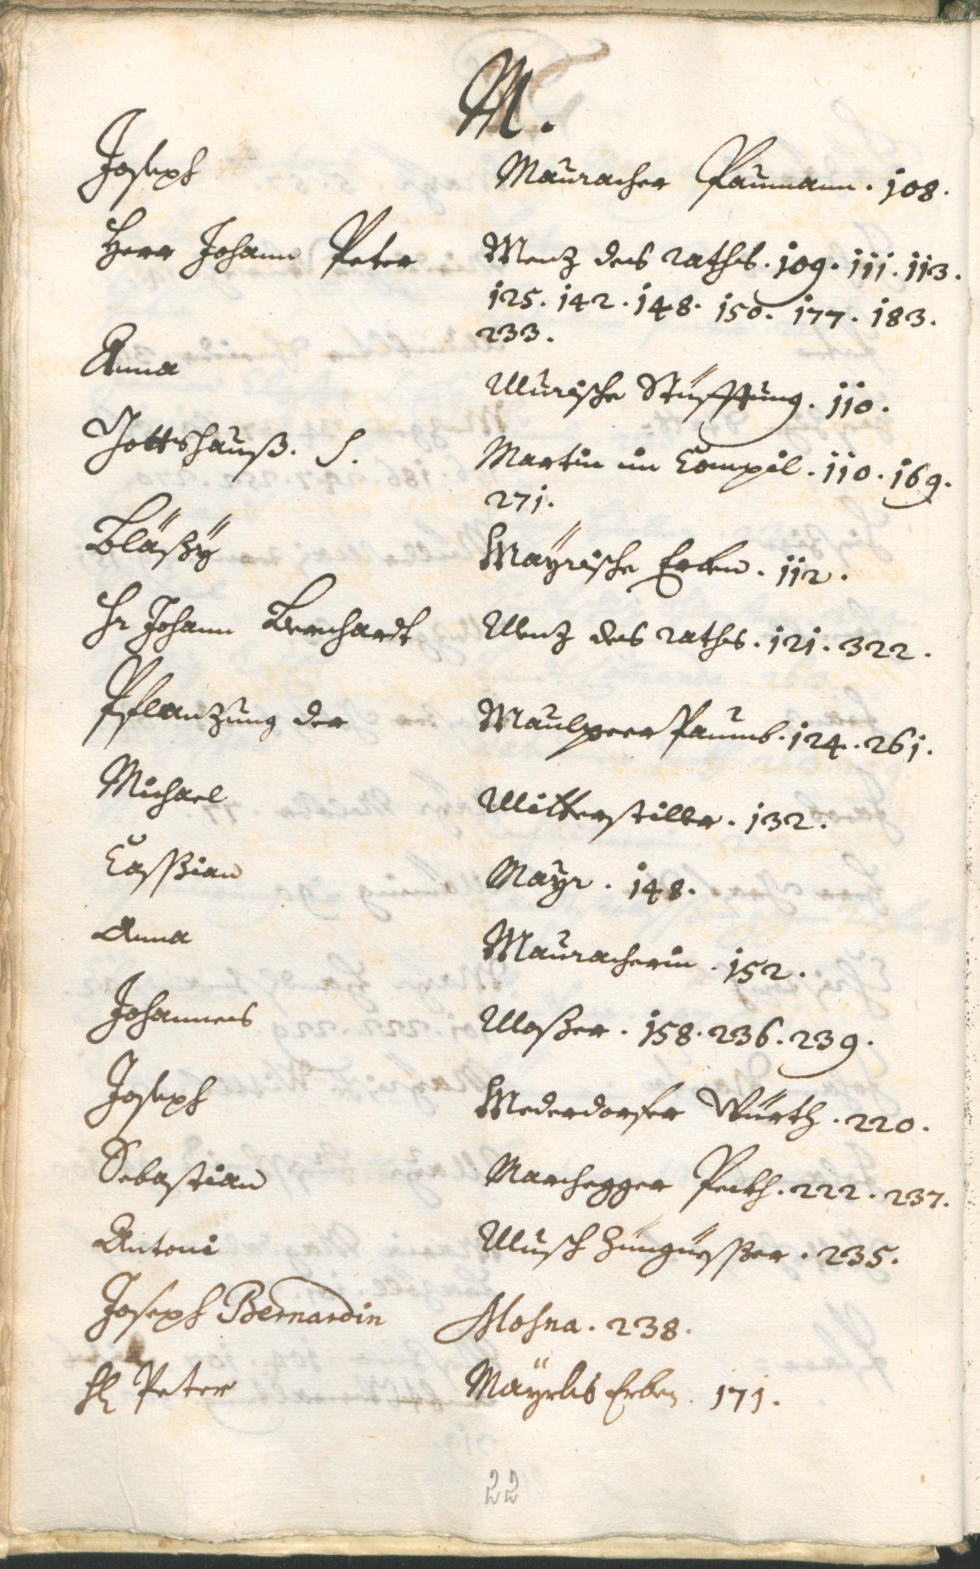 M.
Joseph Mauracher Paumann. 108.
Herr Johann Peter Menz des raths. 109. 111. 113.
125. 142. 148. 150. 177. 183.
233.
Anna Murische Stüfftung. 110.
Gottshauß. S. Martin in Campil. 110. 169.
271.
Bläßÿ Maÿrische Erben. 112.
Hr Johann Bernhardt Menz des raths. 121. 322.
Pflanzung der Maulpeer Paumb. 124. 261.
Michael Mitterstiller. 132.
Cassian Maÿr. 148.
Anna Mauracherin. 152.
Johannes Moßer. 158. 236. 239.
Joseph Mederdorfer Würth. 220.
Sebastian Marchegger Peckh. 222. 237.
Antoni Musch Züngüesser. 235.
Joseph Bernardin Mosna. 238.
H Peter Maÿrls Erben. 171.
22